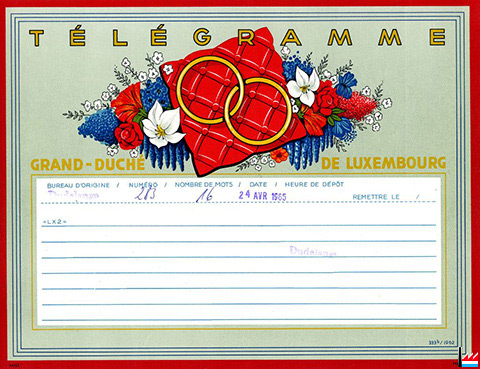 TÉLÉGRAMME
GRAND-DUCHÉ DE LUXEMBOURG
BUREAU D'ORIGINE / NUMÉRO / NOMBRE DE MOTS / DATE / HEURE DE DÉPÔT
Dudelange 213 16 24 AVR 1965 REMETTRE LE /
=LX2=
Dudelange